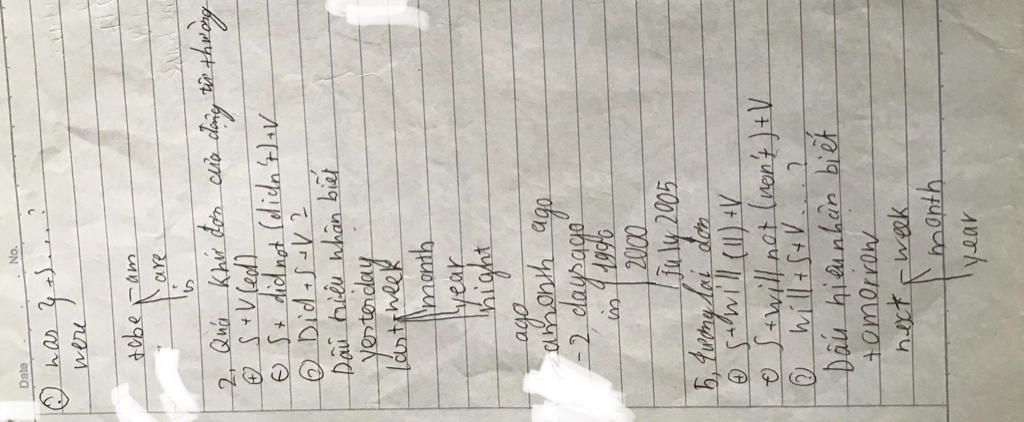 Date No.
? was } + S....?
were
tobe - am
are
is
2, Quá khứ đơn của động từ thường
+ S + V(ed)
- S + did not (didn't) + V
? Did + S + V?
Dấu hiệu nhân biết
Yesterday
last week
month
year
night
ago
a month ago
- 2 days ago
in 1996
2000
July 2005
5, Tương lai đơn
+ S + will (ll) + V
- S + will not (won't) + V
? will + S + V...?
Dấu hiệu nhân biết
tomorrow
next week
month
year